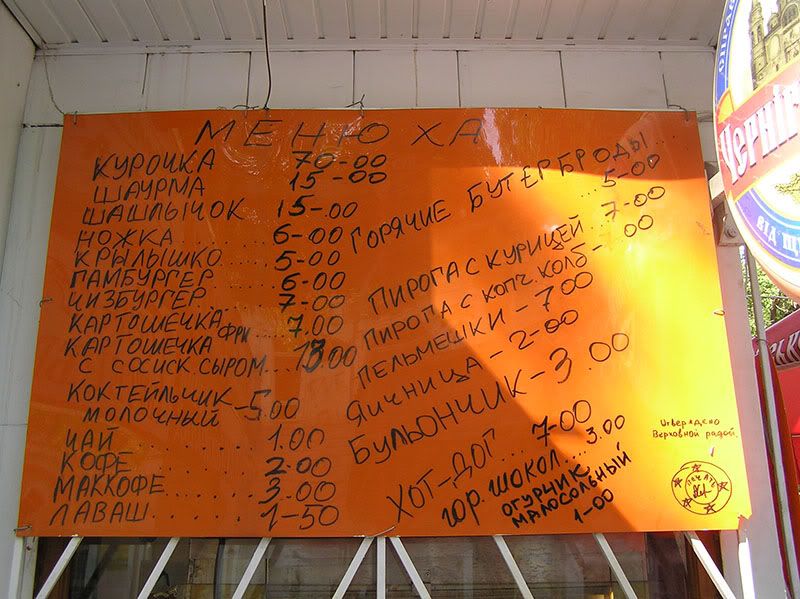 МЕНЮХА
КУРОЧКА 70-00
ШАУРМА 15-00
ШАШЛЫЧОК 15-00
НОЖКА......6-00
КРЫЛЫШКО....5-00
ГАМБУРГЕР....6-00
ЧИЗБУРГЕР....7-00
КАРТОШЕЧКА ФРИ...7.00
КАРТОШЕЧКА
С СОСИСК. СЫРОМ...13.00
КОКТЕЙЛЬЧИК
МОЛОЧНЫЙ-5.00
ЧАЙ........1.00
КОФЕ.......2.00
МАККОФЕ....3.00
ЛАВАШ......1-50
ГОРЯЧИЕ БУТЕРБРОДЫ...
...5-00
ПИРОГА С КУРИЦЕЙ..7-00
ПИРОГА С КОПЧ. КОЛБ-7.00
ПЕЛЬМЕШКИ-7.00
ЯИЧНИЦА-2-00
БУЛЬОНЧИК-3.00
ХОТ-ДОГ...7-00
ГОР. ШОКОЛ...3.00
ОГУРЧИК
МАЛОСОЛЬНЫЙ
1-00
Утверждено
Верховной радой.
ПЕЧАТЬ
Черніг
ВІД Щ